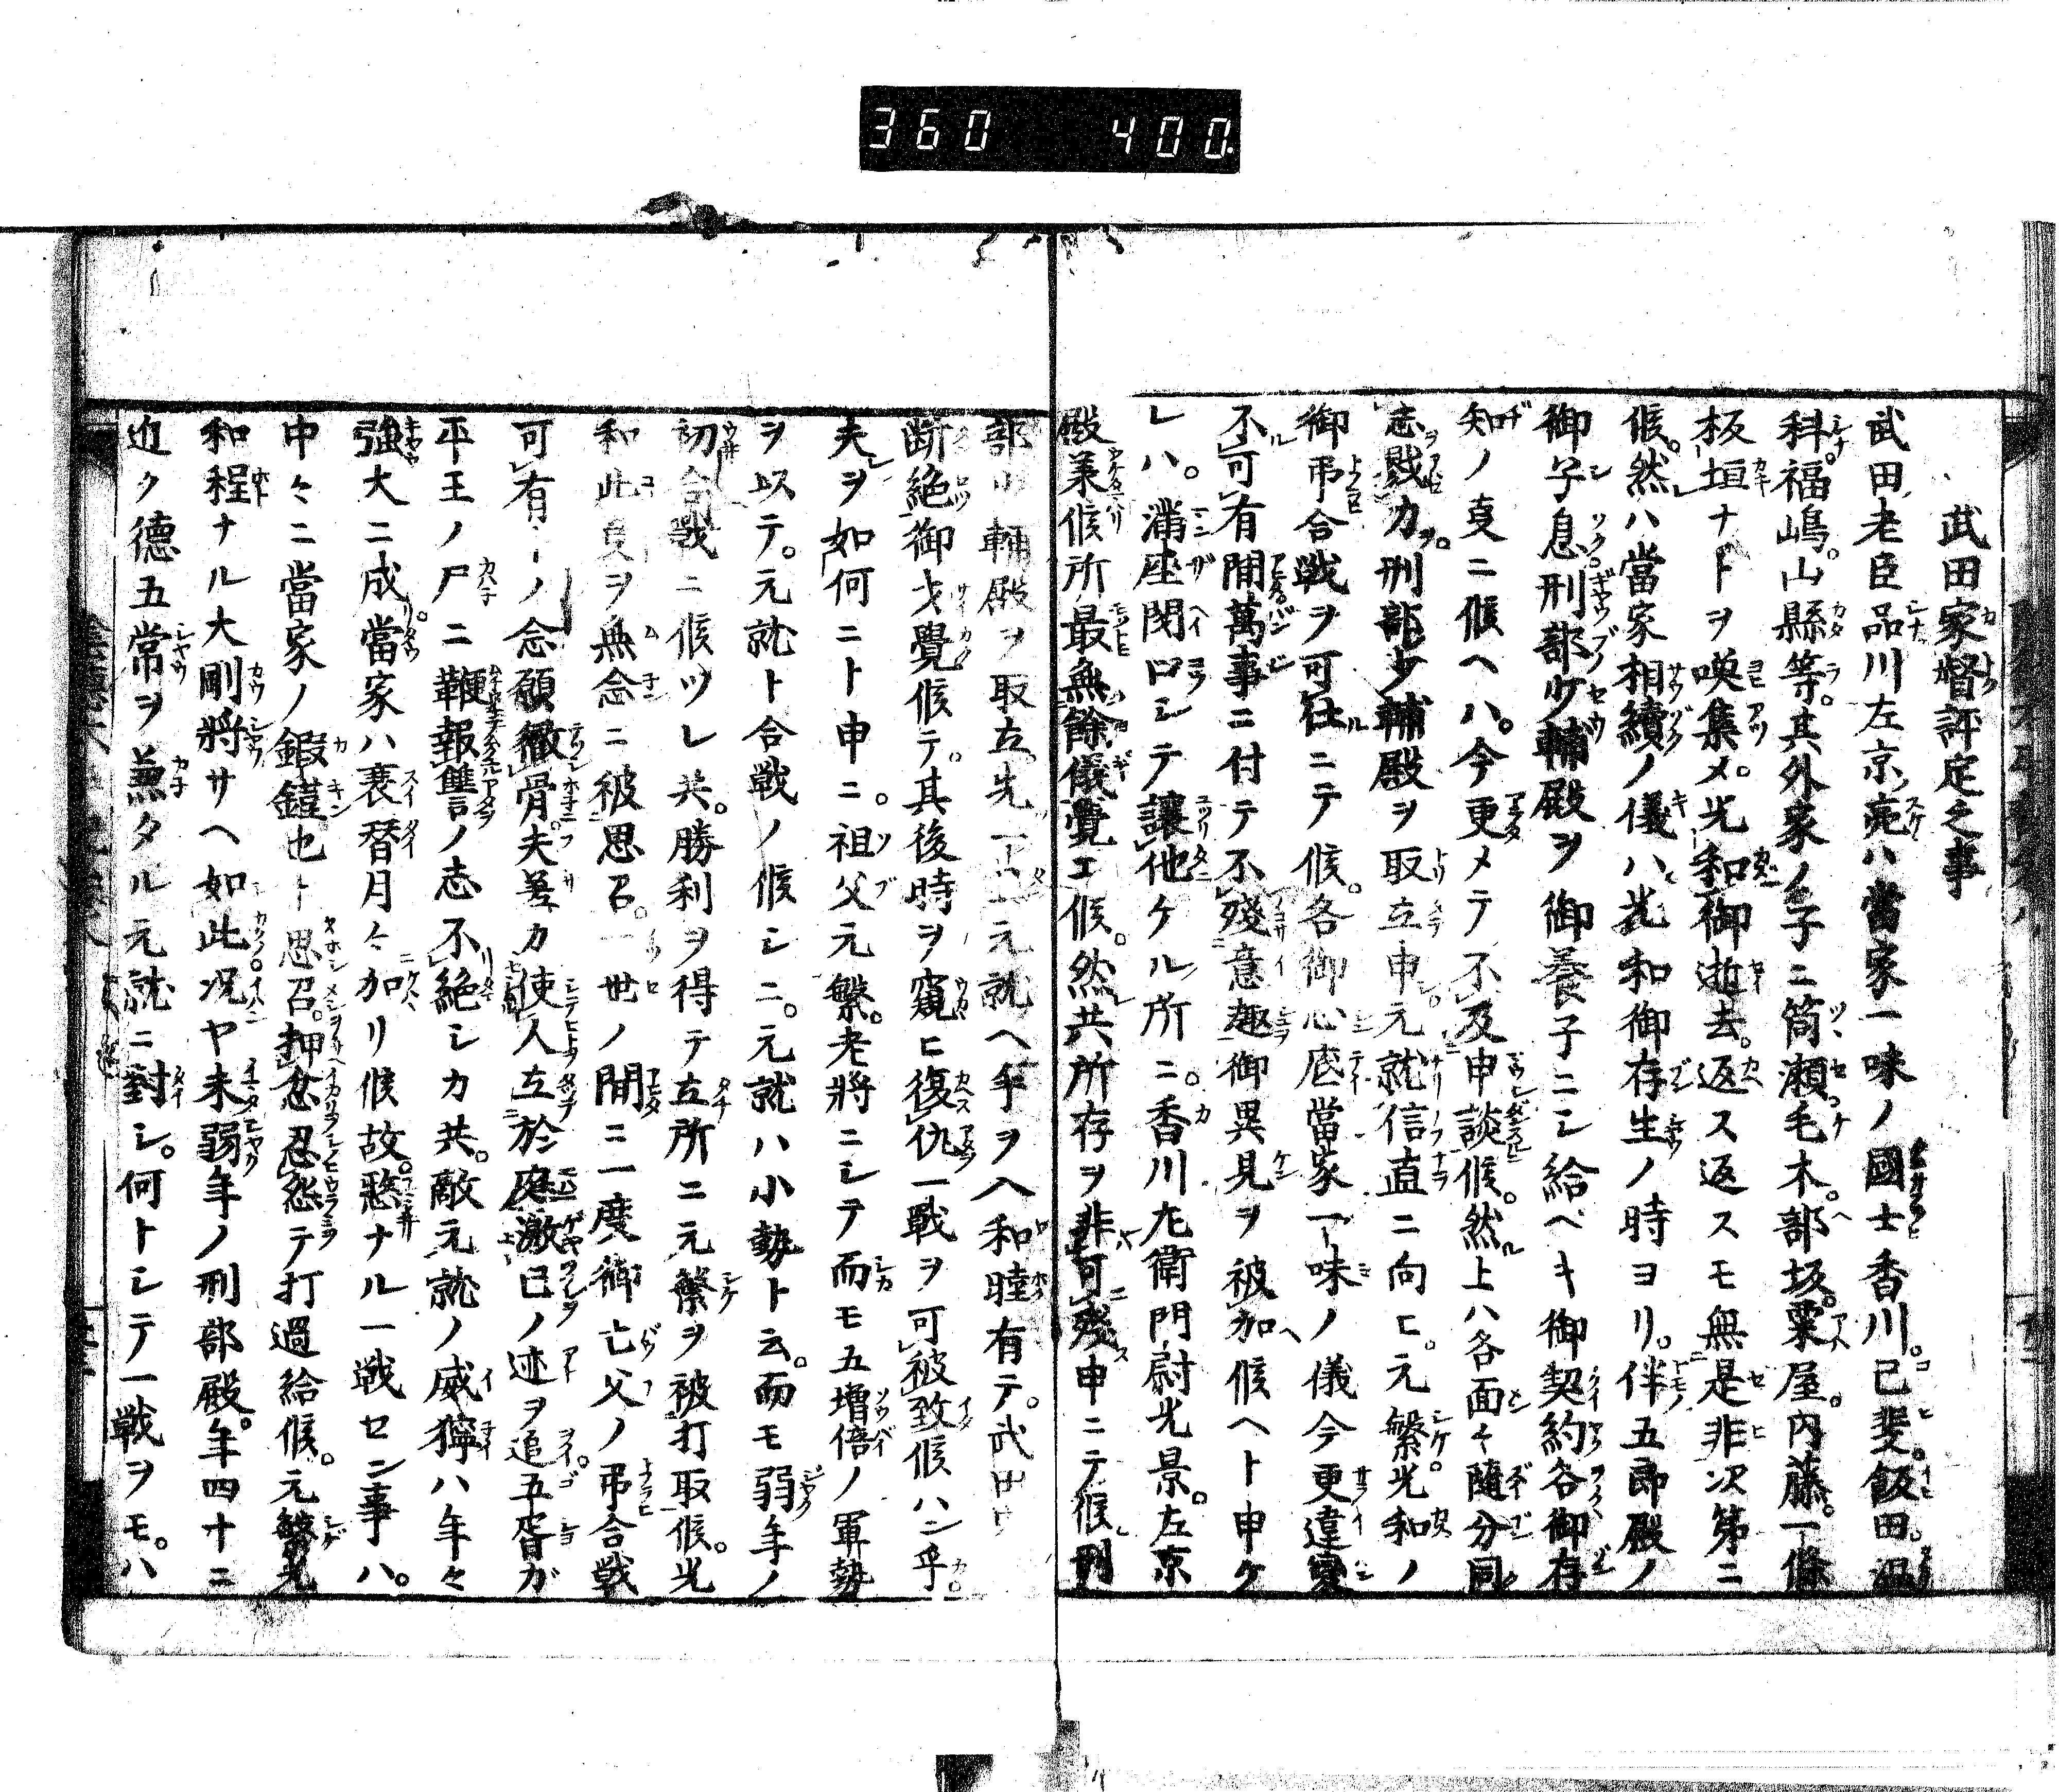 360 400.
武田家督評定之事
武田老臣品川左京亮ハ當家一味ノ國士香川。己斐。飯田。温
科。福嶋。山縣等。其外家ノ子ニ筒瀬毛木。部坂。粟屋。内藤。一條
板垣ナドヲ喚集メ。光和御逝去。返ス返スモ無是非次第ニ
候。然レハ當家相續ノ儀ハ光和御存生ノ時ヨリ。伴五郎殿ノ
御子息刑部少輔殿ヲ御養子ニシ給ベキ御契約各御存
知ノ亊ニ候ヘハ。今更メテ不及申談候。然上ハ各面々隨分同
志戮力ヲ。刑部少輔殿ヲ取立申。元就信直ニ向ヒ。元繁。光和ノ
御弔合戦ヲ可仕ニテ候。各御心底當家一味ノ儀今更違變
不可有間萬事ニ付テ不殘意趣御異見ヲ被加候ヘト申ケ
レハ。滿座閉口シテ讓他ケル所ニ。香川左衛門尉光景。左京
殿義候所最無餘儀覺エ候。然共所存ヲ非可殘申ニテ候刑
部少輔殿ヲ取立先元就ヘ手ヲ入和睦有テ。武田
断絶御才覺候テ。其後時ヲ窺ヒ復仇一戰ヲ可被致候ハン乎。
夫ヲ如何ニト申ニ。祖父元繁。老將ニシテ而モ五増倍ノ軍勢
ヲ以テ。元就ト合戦ノ候シニ。元就ハ小勢ト云。而モ弱年ノ
初合戦ニ候ツレ共。勝利ヲ得テ立所ニ元繁ヲ被打取候。光
和此亊ヲ無念ニ被思召。一世ノ間ニ一度御亡父ノ弔合戦
可有トノ念願徹骨。夫差カ使人立於庭激已ノ迹ヲ追。五胥ガ
平王ノ尸ニ鞭報讐ノ志不絶シカ共。敵元就ノ威獰ハ年々
強大ニ成。當家ハ衰替月々加リ候故。憖ナル一戦セン事ハ。
中々ニ當家ノ瑕瑾也ト思召。押忿忍怨テ打過給候。元繁光
和程ナル大剛將サヘ如此況ヤ未弱年ノ刑部殿。年四十ニ
近ク德五常ヲ兼タル元就ニ對シ。何トシテ一戦ヲモ。ハ